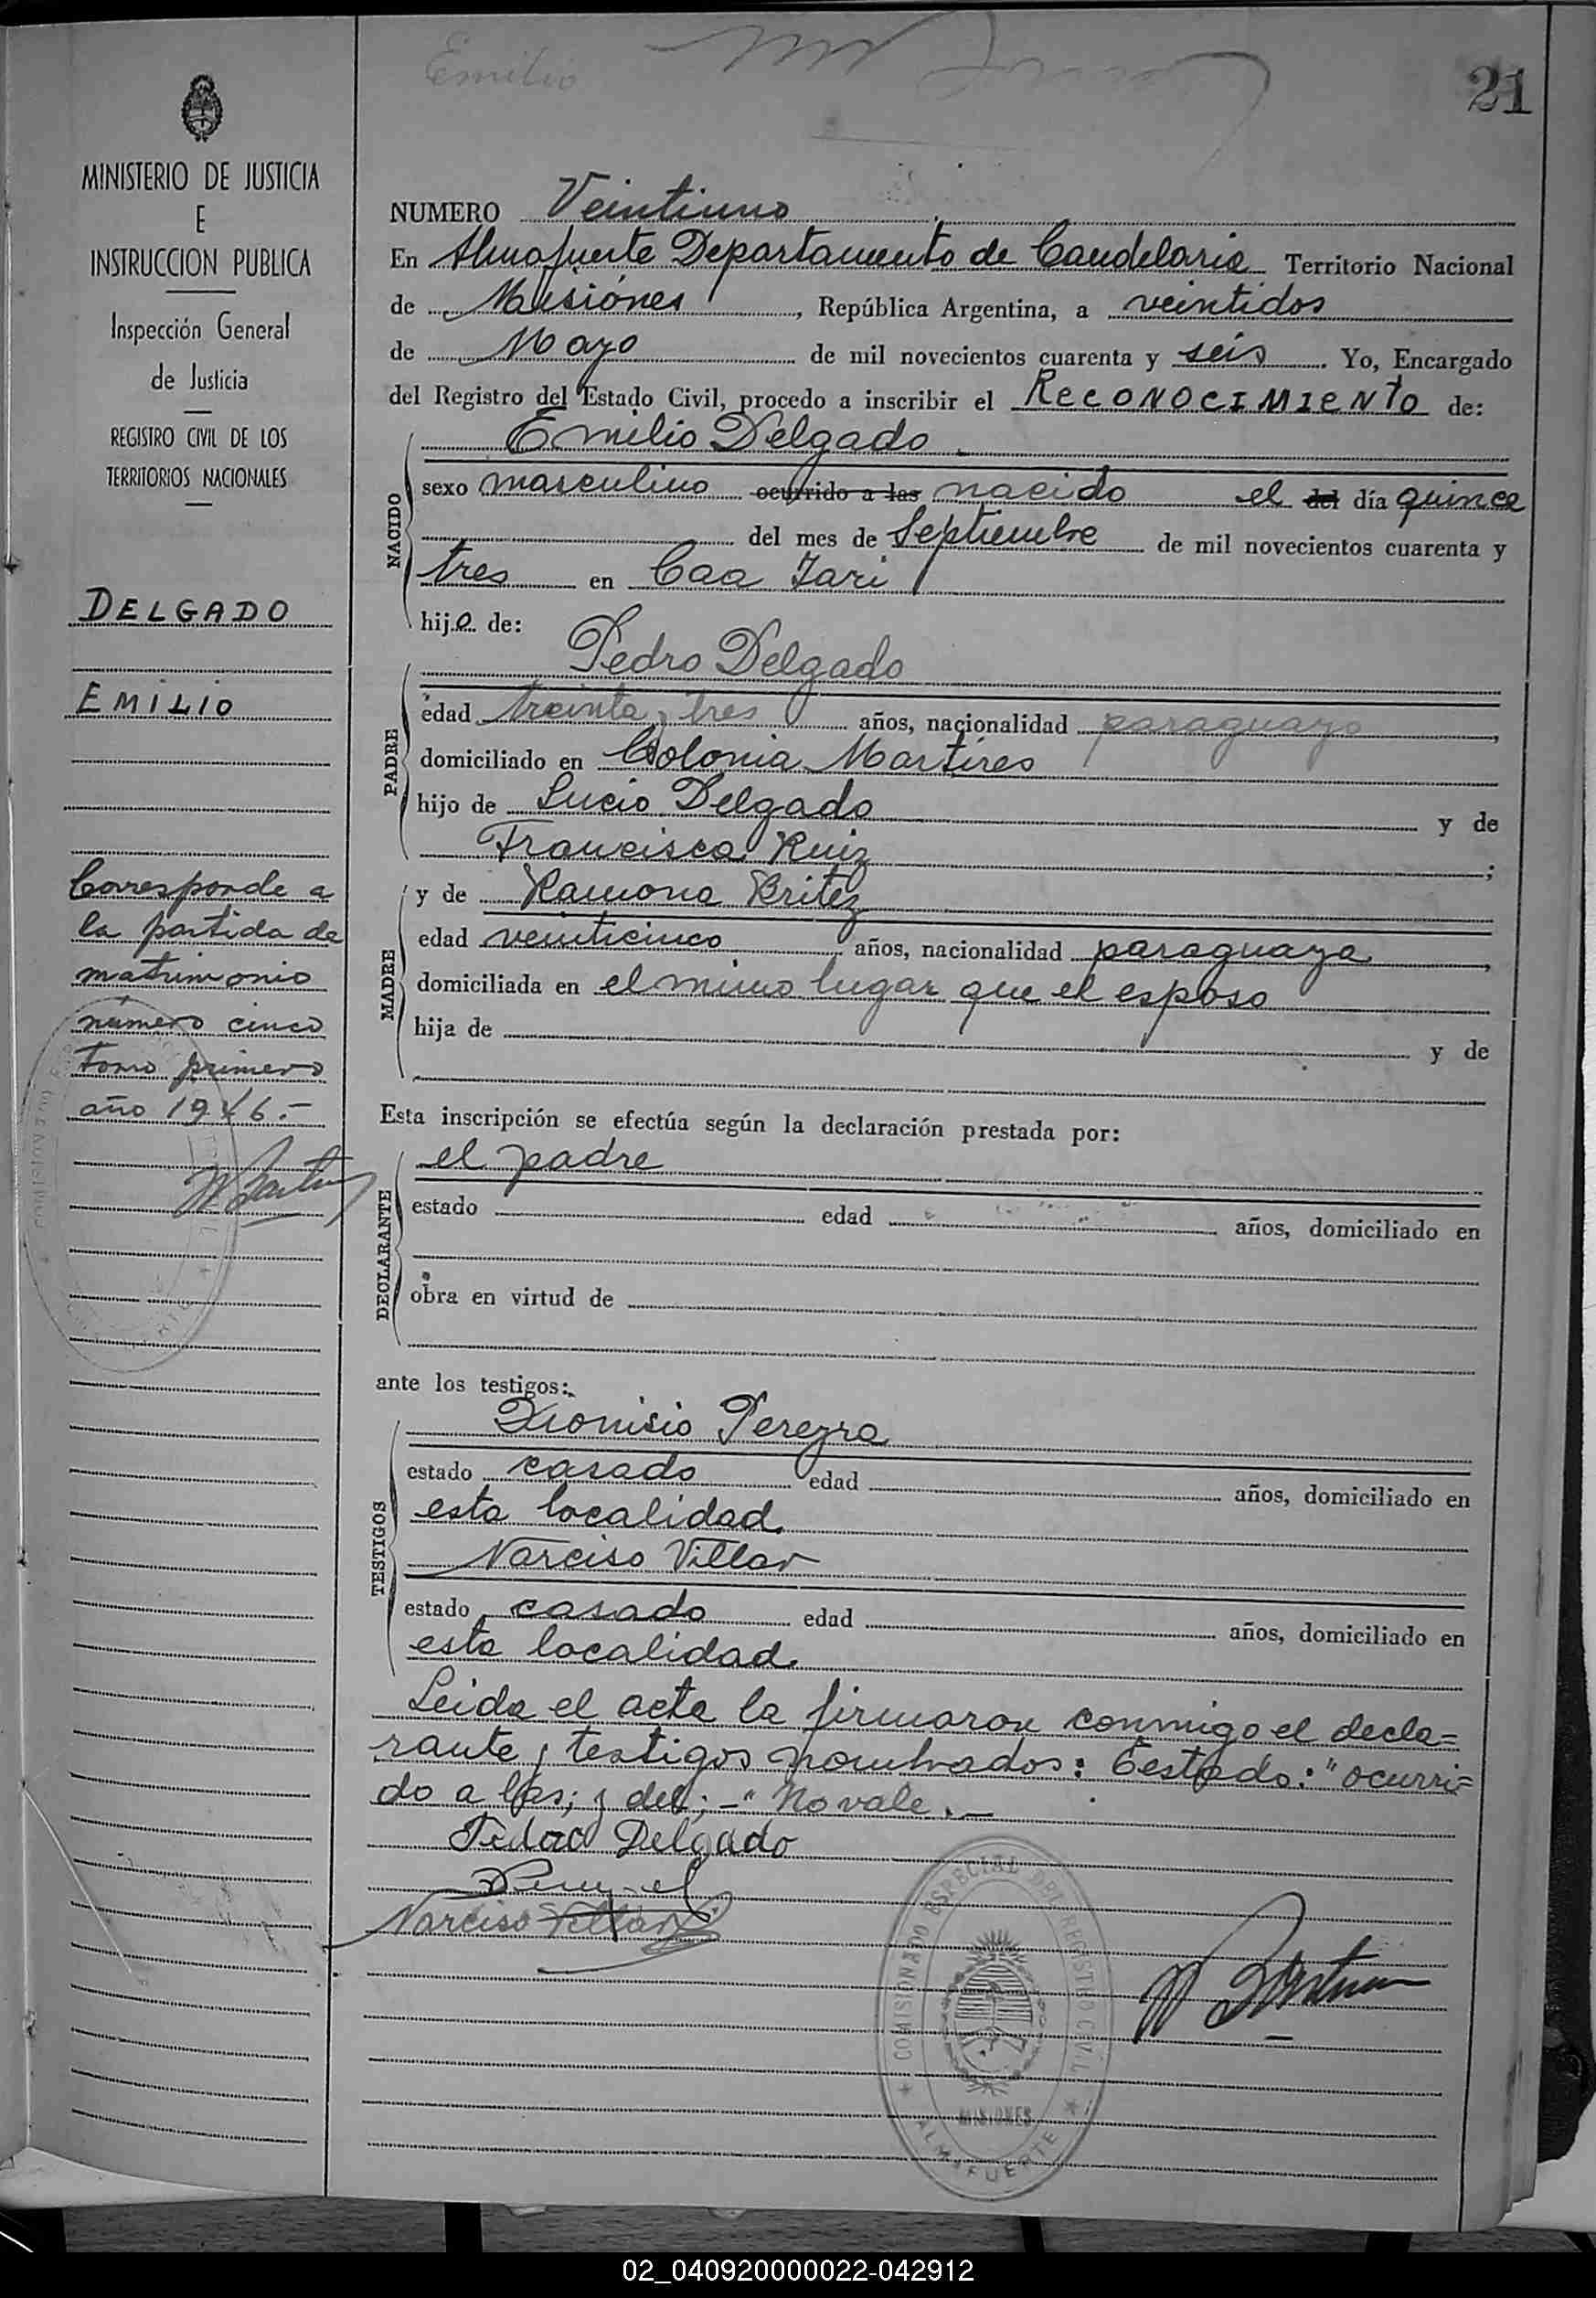 Emilio
21
MINISTERIO DE JUSTICIA
E
INSTRUCCION PUBLICA
Inspección General
de Justicia
REGISTRO CIVIL DE LOS
TERRITORIOS NACIONALES
DELGADO
EMILIO
Corresponde a
la partida de
matrimonio
número cinco
tomo primero
año 1946.-
NUMERO Veintiuno
En Almafuerte Departamento de Candelaria Territorio Nacional
de Misiónes, República Argentina, a veintidos
de Mayo de mil novecientos cuarenta y seis. Yo, Encargado
del Registro del Estado Civil, procedo a inscribir el RECONOCIMIENTO de:
NACIDO
Emilio Delgado
sexo masculino ocurrido a las nacido el del día quince
del mes de Septiembre de mil novecientos cuarenta y
tres en Caa Yari
hijo de:
PADRE
Pedro Delgado
edad treinta y tres años, nacionalidad paraguayo,
domiciliado en Colonia Martires
hijo de Lucio Delgado y de
Francisca Ruiz;
MADRE
y de Ramona Britez
edad veinticinco años, nacionalidad paraguaya,
domiciliada en el mimo lugar que el esposo
hija de y de
Esta inscripción se efectúa según la declaración prestada por:
DECLARANTE
el padre
estado edad años, domiciliado en
obra en virtud de
ante los testigos:
TESTIGOS
Dionisio Pereyra
estado casado edad años, domiciliado en
esta localidad.
Narciso Villar
estado casado edad años, domiciliado en
esta localidad.
Leida el acta la firmaron conmigo el decla=
rante y testigos nombrados: Testado: "ocurri=
do a las; y del; -" No vale.-
Pedro Delgado
Narciso Villar
COMISIONADO ESPECIAL DEL REGISTRO CIVIL
MISIONES
ALMAFUERTE
02_040920000022-042912